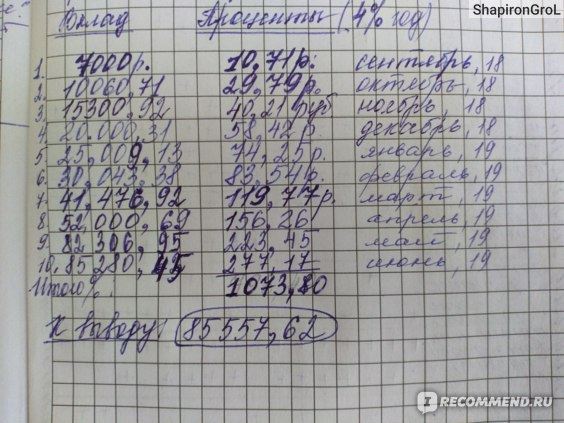 ShapironGroL
Вклад Проценты (4% год)
1. 7000р. 10,71р. сентябрь, 18
2. 10060,71 29,79р. октябрь, 18
3. 15300,92 40,21 руб ноябрь, 18
4. 20.000,31 58,42р. декабрь, 18
5. 25,009,13 74,25р. январь, 19
6. 30,043,38 83,54р. февраль, 19
7. 41,476,92 119,77р. март, 19
8. 52,000,69 156,26 апрель, 19
9. 82306,95 223,45 май, 19
10. 85280,45 277,17 июнь, 19
Итого % 1073,80
К выводу: 85557,62
I RECOMMEND.RU